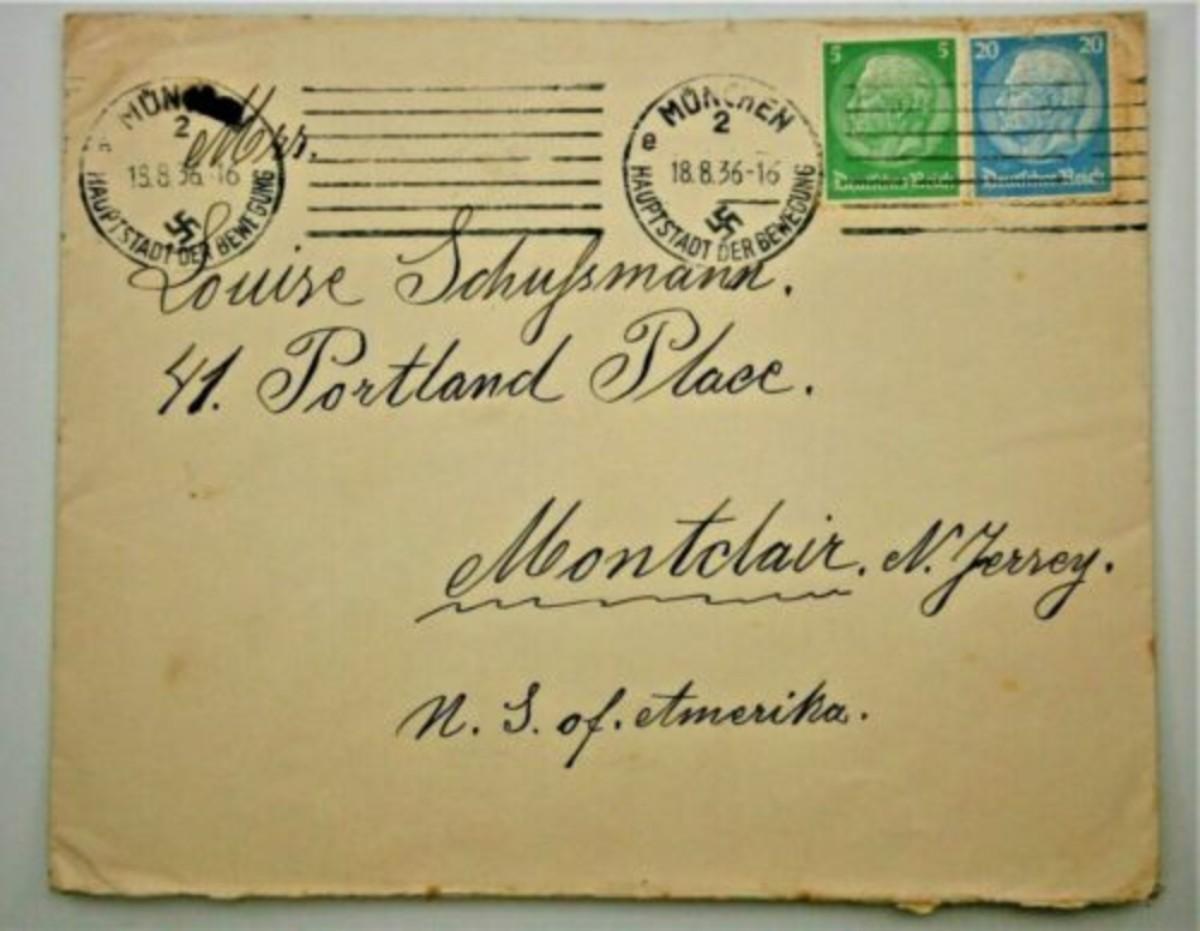 MÜN
2
18.8.36-16
HAUPTSTADT DER BEWEGUNG
MÜNCHEN
2
e
18.8.36-16
HAUPTSTADT DER BEWEGUNG
5 5
Deutsches Reich
20 20
Deutsches Reich
Mrs.
Louise Schußmann.
41. Portland Place.
Montclair. N. Jersey.
N. S. of. Amerika.